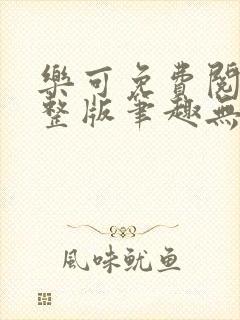 樂可免費閱
整版筆趣無
風味魷鱼